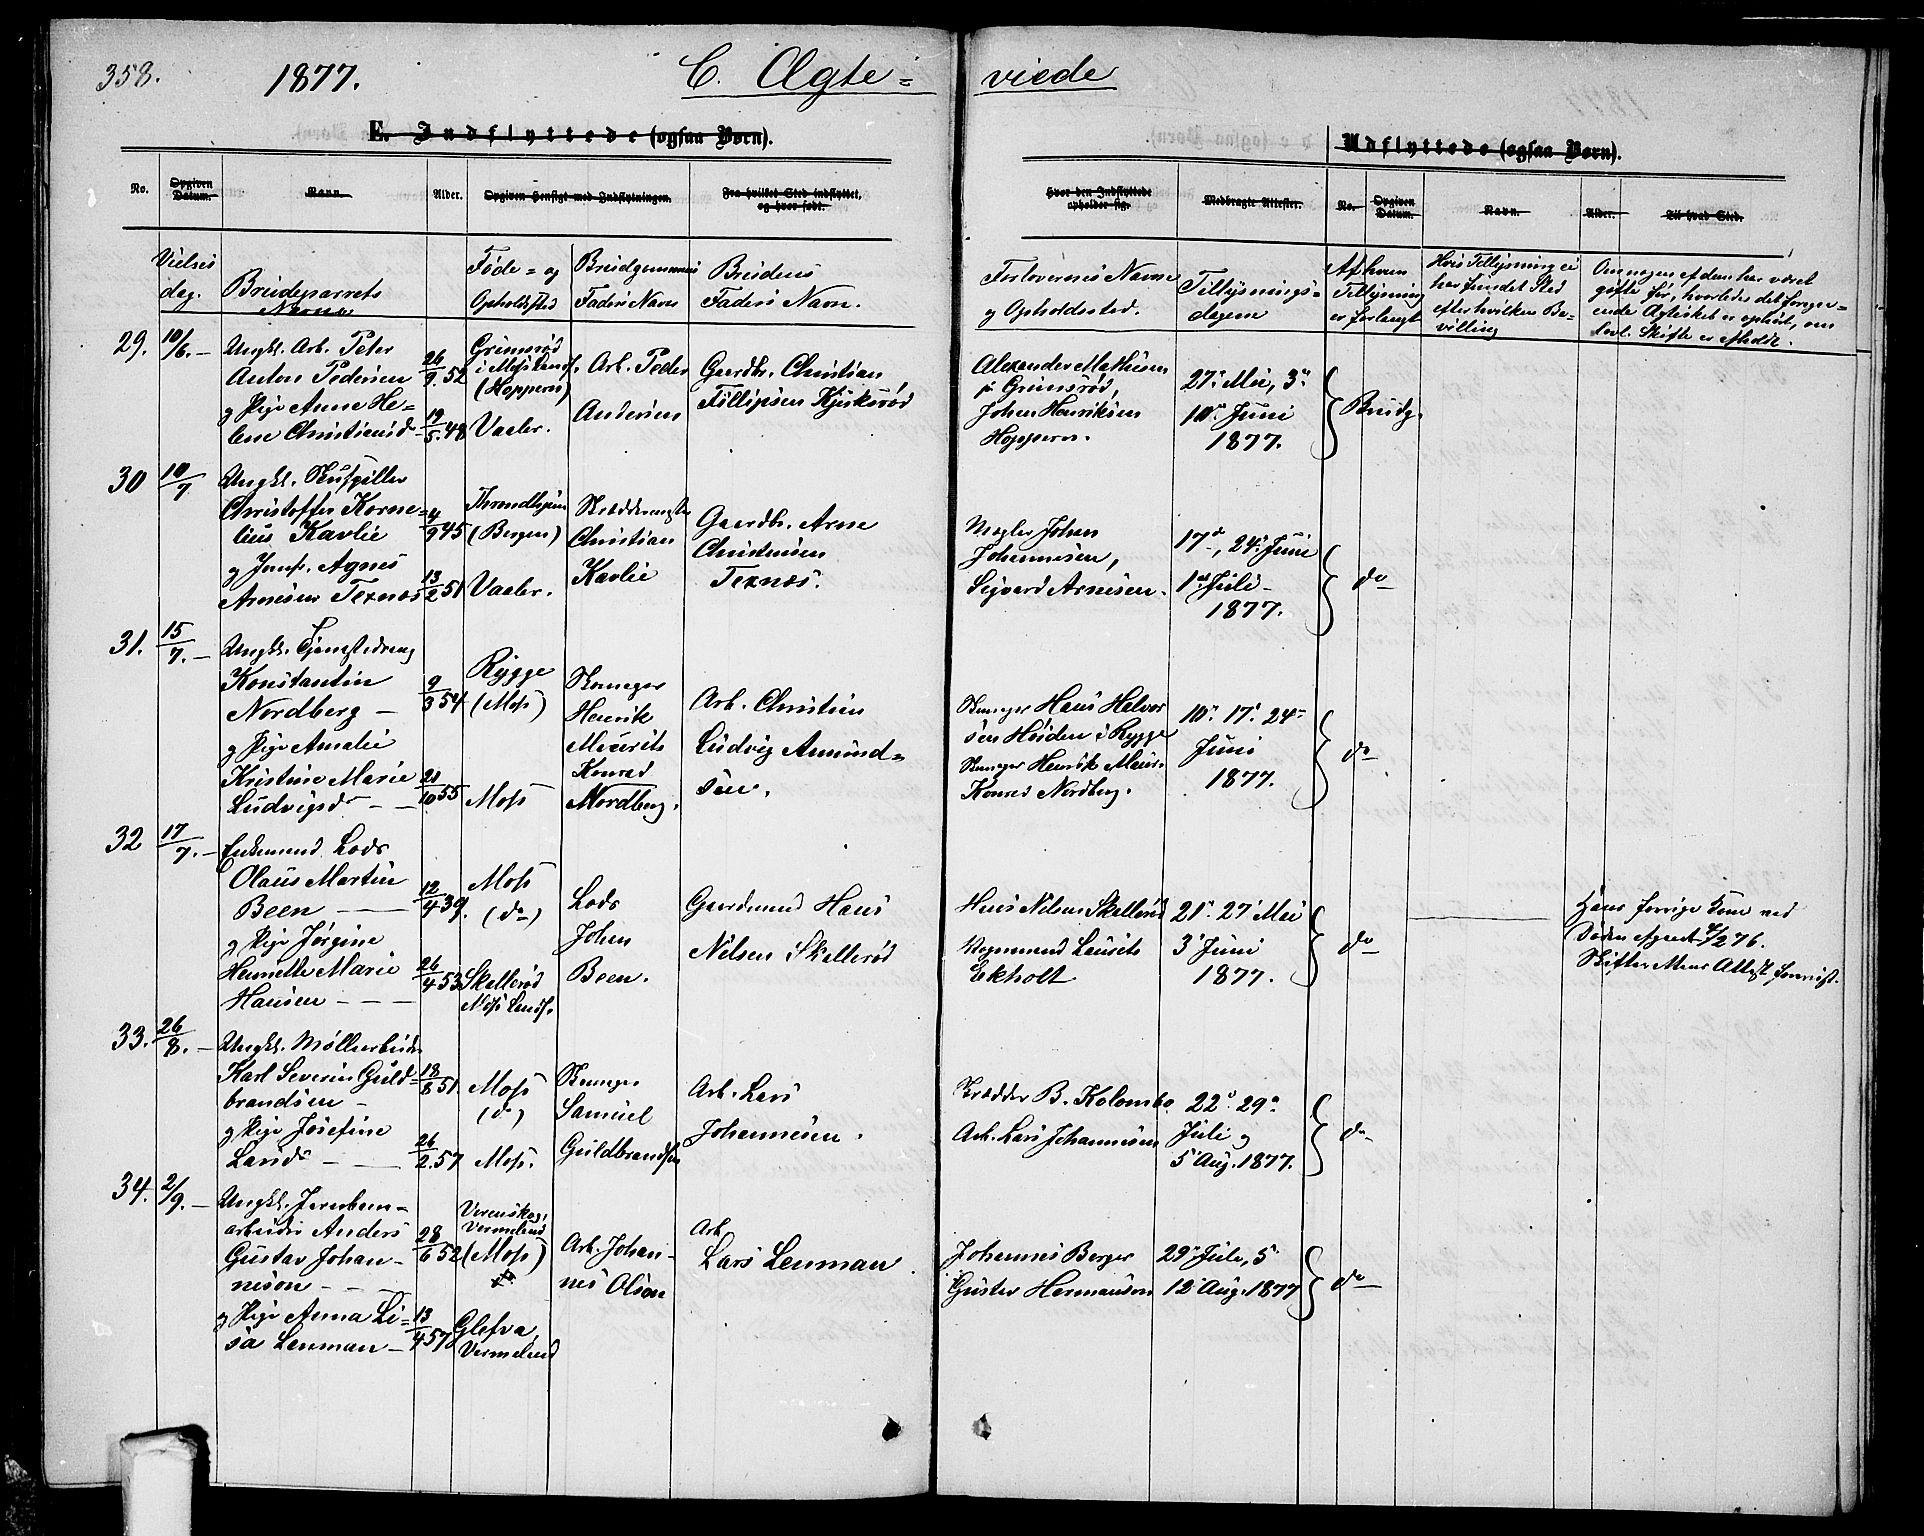 358.
1877.
C. Ægte=
viede
E. Indflyttede (ogsaa Børn).
Udflyttede (ogsaa Børn).
No.
Opgiven Datum.
Navn.
Alder.
Opgiven Hensigt med Indflytningen.
Fra hvilket Sted indflyttet, og hvor født.
Hvor den Indflyttede opholder sig.
Medbragte Attester.
No.
Opgiven Datum.
Navn.
Alder.
Til hvad Sted.
Vielses
dag.
Brudeparrets
Navne
Føde= og
Opholdssted
Brudgommens
Faders Navn
Brudens
Faders Navn.
Forlovernes Navne
og Opholdssted.
Tillysnings=
dagene
Af hvem
Tillysning
er forlangt
Hvis Tillysning ei
har fundet Sted
efter hvilken Be-
villing
Om nogen af dem har været
gifte før, hvorledes det foregaa-
ende Ægteskab er ophørt, om
lovl. Skifte er afholdt.
29. 10/6. –
Ungkl. Arb. Peter
Anton Pedersen
og Pige Anne He-
lene Christiansd.
26/9 52
19/5. 48
Grimsrød
i Moss Lands.
(Hoppern)
Vaaler.
Arb. Peder
Andersen
Gaardbr. Christian
Fillipsen Kjerksrød
Alexander Mathisen
p. Grimsrød,
Johan Henriksen
Hoppern.
27. Mai, 3.
10. Juni
1877.
Brudg.
30 10/7
Ungkl. Skuspiller
Christoffer Korne=
lius Kavlie
og Jomf. Agnes
Arnesen Texnæs
4/9 45
13/2 51
Throndhjem
(Bergen)
Vaaler.
Skrædermester
Christian
Kavlie
Gaardbr. Arne
Christensen
Texnæs.
Mægler Johan
Johannesen,
Sigvard Arnesen.
17de, 24. Juni
1ste Juli
1877.
do
31. 15/7. –
Ungkl. Tjenstedreng
Konstantin
Nordberg –
og Pige Amalie
Kristine Marie
Ludvigsd. – –
9/3 54
21/10 55
Rygge
(Moss)
Moss
Skomager
Henrik
Maurits
Konrad
Nordberg.
Arb. Christian
Ludvig Amund=
sen.
Skomager Hans Halvor
sen Høiden i Rygge
Skomager Henrik Maur.
Konrad Nordberg.
10. 17. 24.
Juni
1877.
do
32 17/7. –
Enkemand Lods
Olaus Martin
Been –
og Pige Jørgine
Henriette Marie
Hansen – –
12/4 39.
26/4 53
Moss
(do)
Skallerød
Moss Lands.
Lods
Johan
Been.
Gaardmand Hans
Nilsen Skallerød
Hans Nilsen Skallerød
Vognmand Laurits
Ekholt
21. 27 Mai
3. Juni
1877.
do
Hans forrige Kone ved
Døden afgaaet 4/2 76.
Skifterettens Attest forevist.
33. 26/8. –
Ungkl. Møllerbuden
Karl Severin Guld=
brandsen –
og Pige Josefine
Larsd. – –
18/8 51.
26/2. 57
Moss
(do)
Moss.
Skomager
Samuel
Guldbrandsen
Arb. Lars
Johannesen.
Skrædder B. Kolombo
Arb. Lars Johannesen
22. 29.
Juli og
5. Aug. 1877.
do
34. 2/9. –
Ungkl. Jernban=
arbeider Anders
Gustav Johan-
neson – –
og Pige Anna Li=
sa Lenman –
28/6 52
13/4 57
Vermeland
(Moss)
Glafva,
Vermeland
Arb. Johan-
nes Olson
Arb.
Lars Lenman
Johannes Berger
Gustav Hermanson
29. Juli, 5.
12. Aug. 1877
do